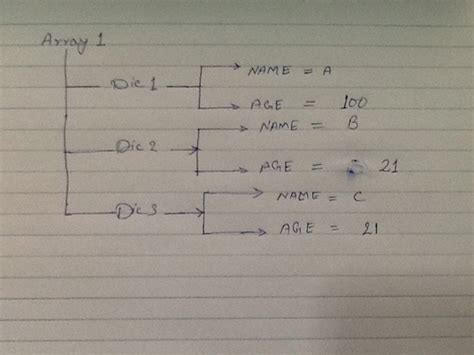 Array 1
Dic 1
NAME = A
AGE = 100
Dic 2
NAME = B
AGE = 21
Dic 3
NAME = C
AGE = 21